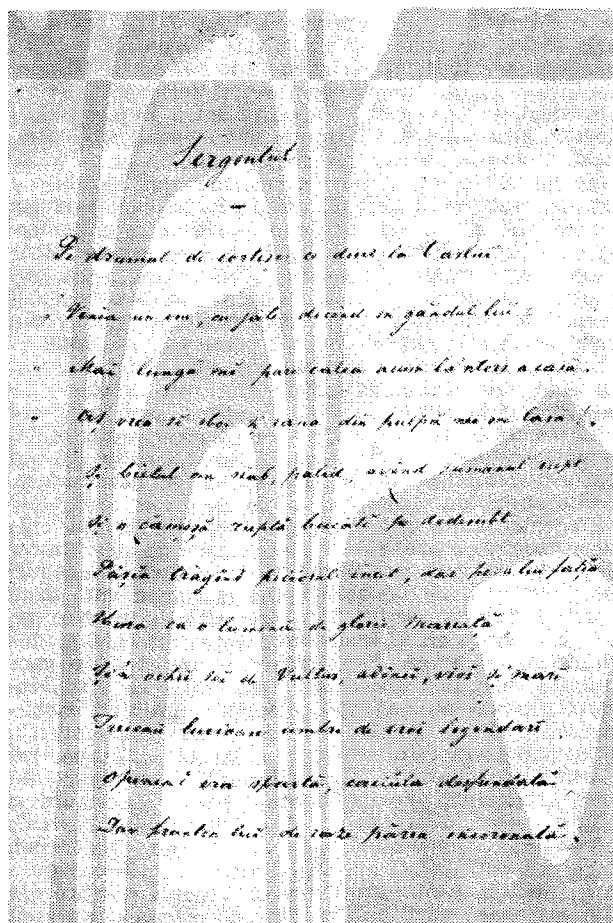 Sergentul
Pe drumul de costișe ce duce la Vaslui
Venia un om, cu jale dicênd in gândul lui
Mai lungă mi pare calea acum la'ntors a casă.
Aș vrea să sbor și rana din pulpă nu me lasă!
Și bietul om slab, palid, avênd sumanul rupt
Și o cămașă ruptă bucăți pe dedesubt
Pășia trăgênd piciorul incet, dar pe a lui față
ca o lumina de glorie măreață
Și'n ochii sĕi de Vultur, adinci, vioi și mari
Treceau lucioase umbre de eroi legendari
Opinca i era spartă, caciula desfundată
Dar fruntea lui de raze părea incoronată.